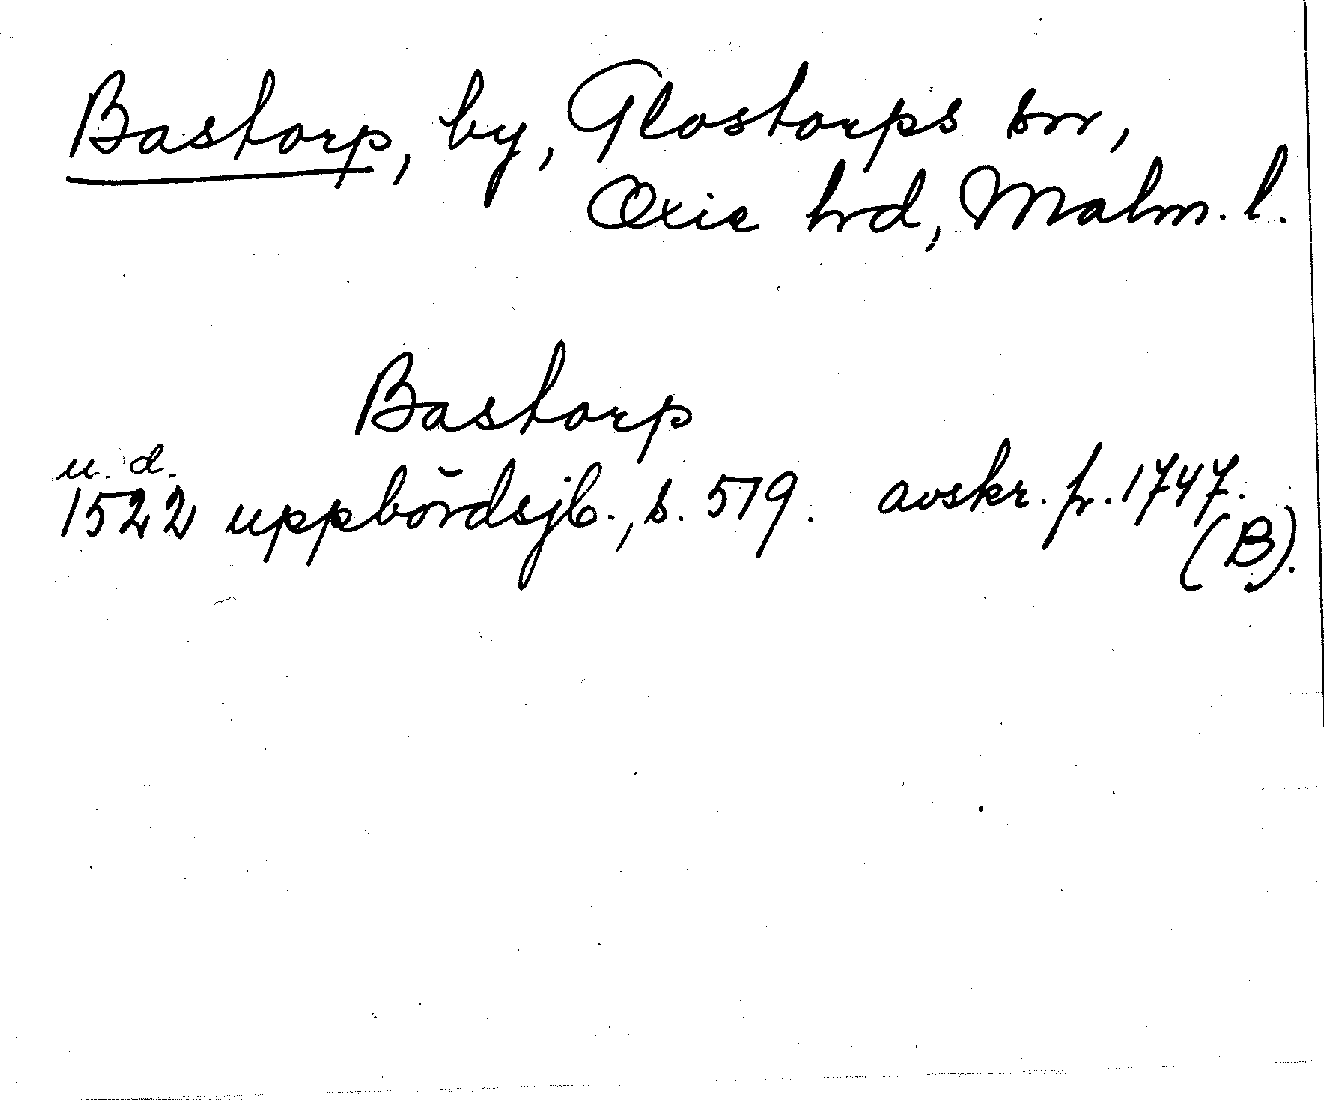 Bastorp, by, Glostorps sn,
Oxie hrd, Malm. l.
Bastorp
u. d.
1522 uppbördsjb., s. 519. avskr. fr. 1747.
(B).